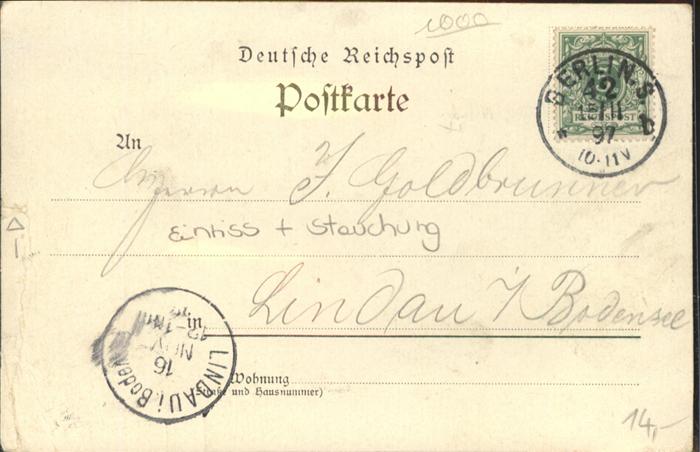 1000
Deutsche Reichspost
Postkarte
REICHSPOST
BERLIN.S.
42
97
10-11V
b
An
Herrn J. Goldbrunner
Einriss + Stauchung
Lindau i/Bodensee
in
LINDAU i. Boden
16
NOV
12-1NM
Wohnung
(Straße und Hausnummer)
14,-